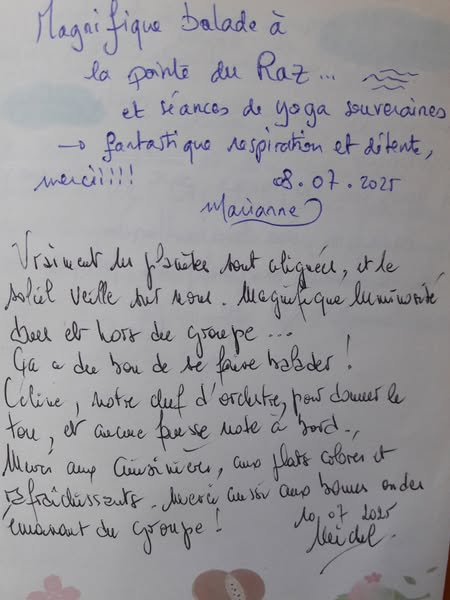 Magnifique balade à
la pointe du Raz...
et séances de yoga souveraines
→ fantastique respiration et détente,
merci!!!!
08.07.2025
Marianne
Vraiment les planètes sont alignées, et le
soleil veille sur nous. Magnifique luminosité
dans et hors du groupe...
Ça a du bon de se faire balader!
Céline, notre chef d'orchestre, pour donner le
ton, et aucune fausse note à bord.,
Merci aux cuisinières, aux plats colorés et
rafraîchissants. Merci aussi aux bonnes ondes
émanant du groupe!
10 07 2025